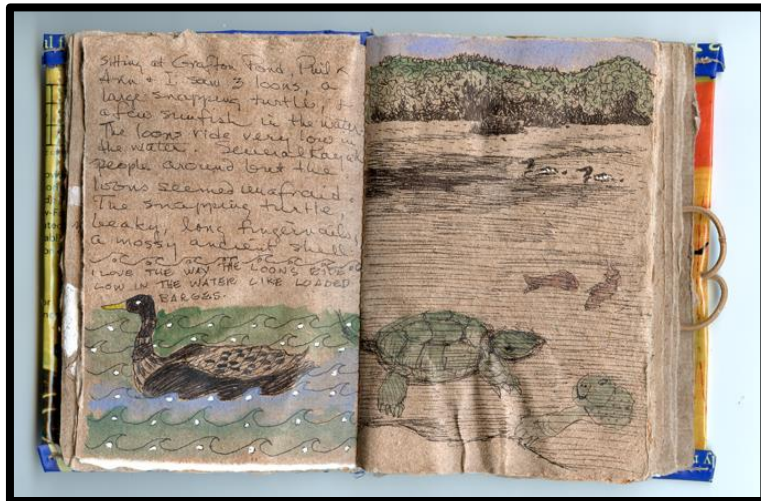 Sitting at Grafton Pond, Phil &
Ann & I saw 3 loons, a
large snapping turtle, &
a few sunfish in the water.
The loons ride very low in
the water. Several kayak
people around but the
loons seemed unafraid.
The snapping turtle,
beaky, long fingernails,
a mossy ancient shell
I LOVE THE WAY THE LOONS RIDE
LOW IN THE WATER LIKE LOADED
BARGES.